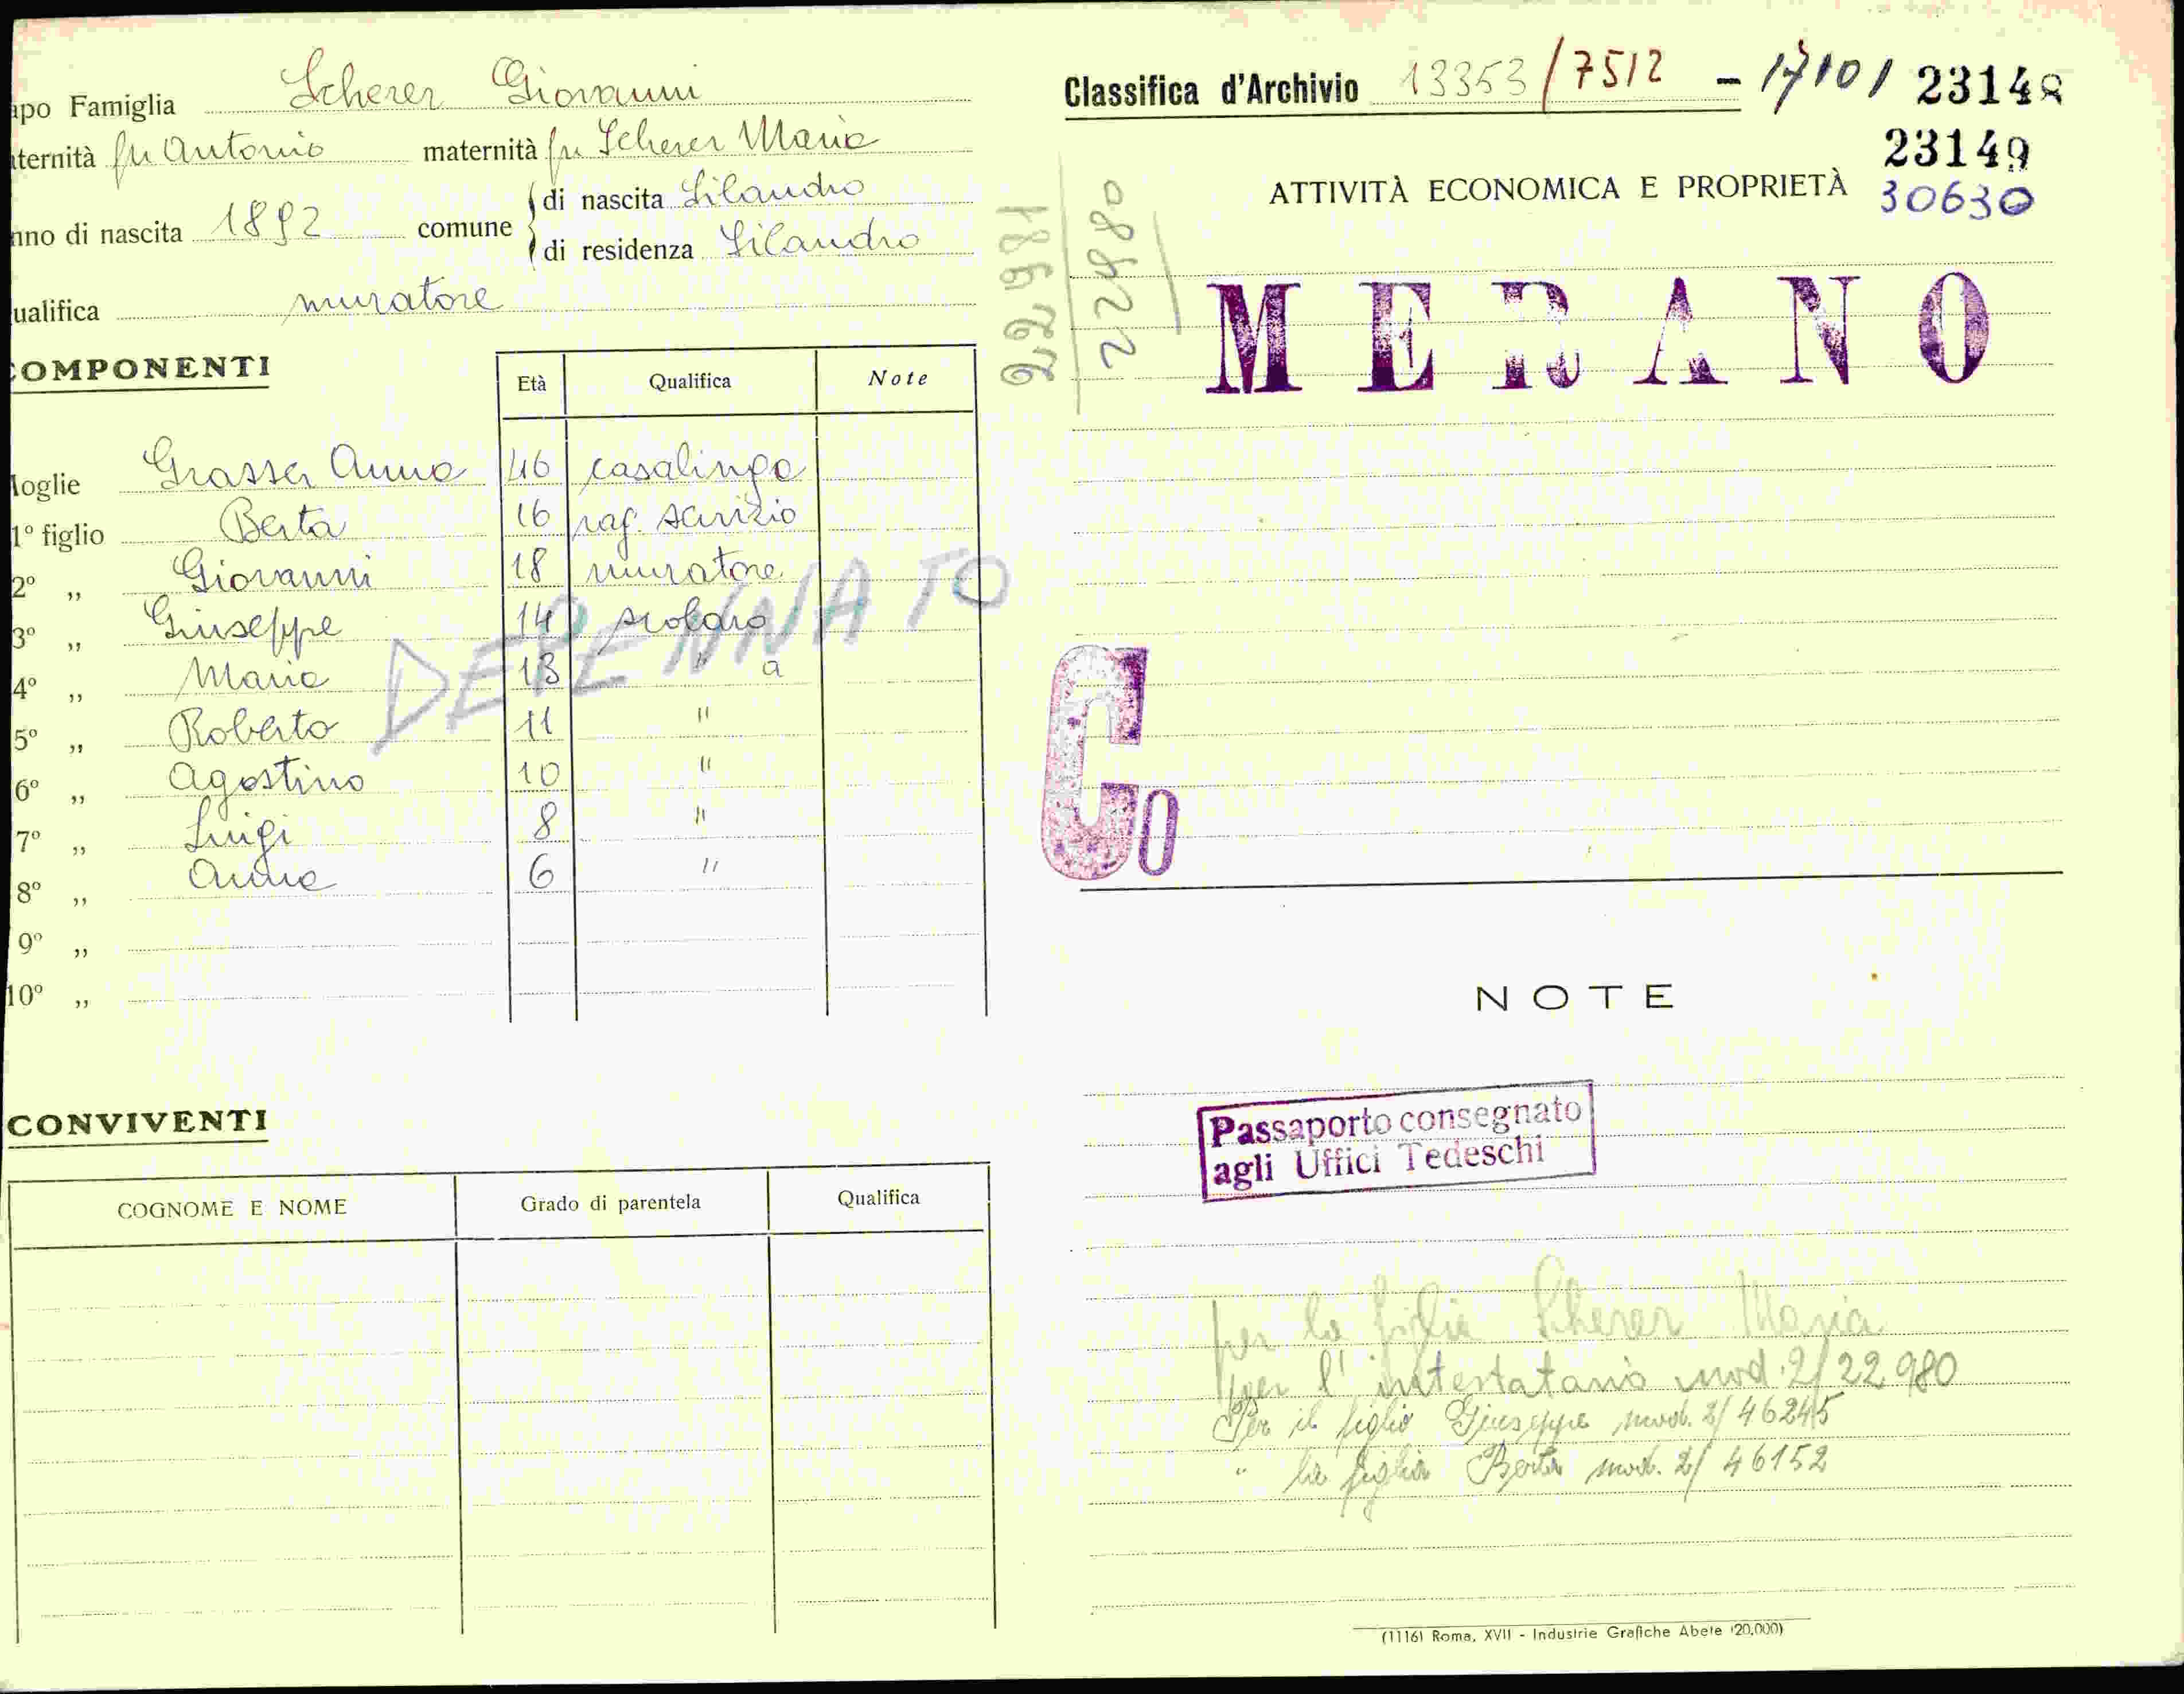 apo Famiglia Scherer Giovanni
aternità fu Antonio maternità fu Scherer Maria
nno di nascita 1892 comune di nascita Silandro
di residenza Silandro
ualifica muratore
COMPONENTI
Età Qualifica Note
Moglie Grasser Anna 46 casalinga
1º figlio Berta 16 rag. servizio
2º „ Giovanni 18 muratore
3º „ Giuseppe 14 scolaro
4º „ Maria 13 " a
5º „ Roberto 11 "
6º „ Agostino 10 "
7º „ Luigi 8 "
8º „ Anna 6 "
9º „
10º „
DEPENNATO
CONVIVENTI
COGNOME E NOME Grado di parentela Qualifica
Classifica d'Archivio 13353/7512 - 17101 23148
23149
ATTIVITÀ ECONOMICA E PROPRIETÀ 30630
22980
MERANO
Co
NOTE
Passaporto consegnato
agli Uffici Tedeschi
per la figlia Scherer Maria
per l'intestatario mod. 2/22980
Per il figlio Giuseppe mod. 2/46245
" la figlia Berta mod. 2/46152
(1116) Roma, XVII - Industrie Grafiche Abete (20.000)